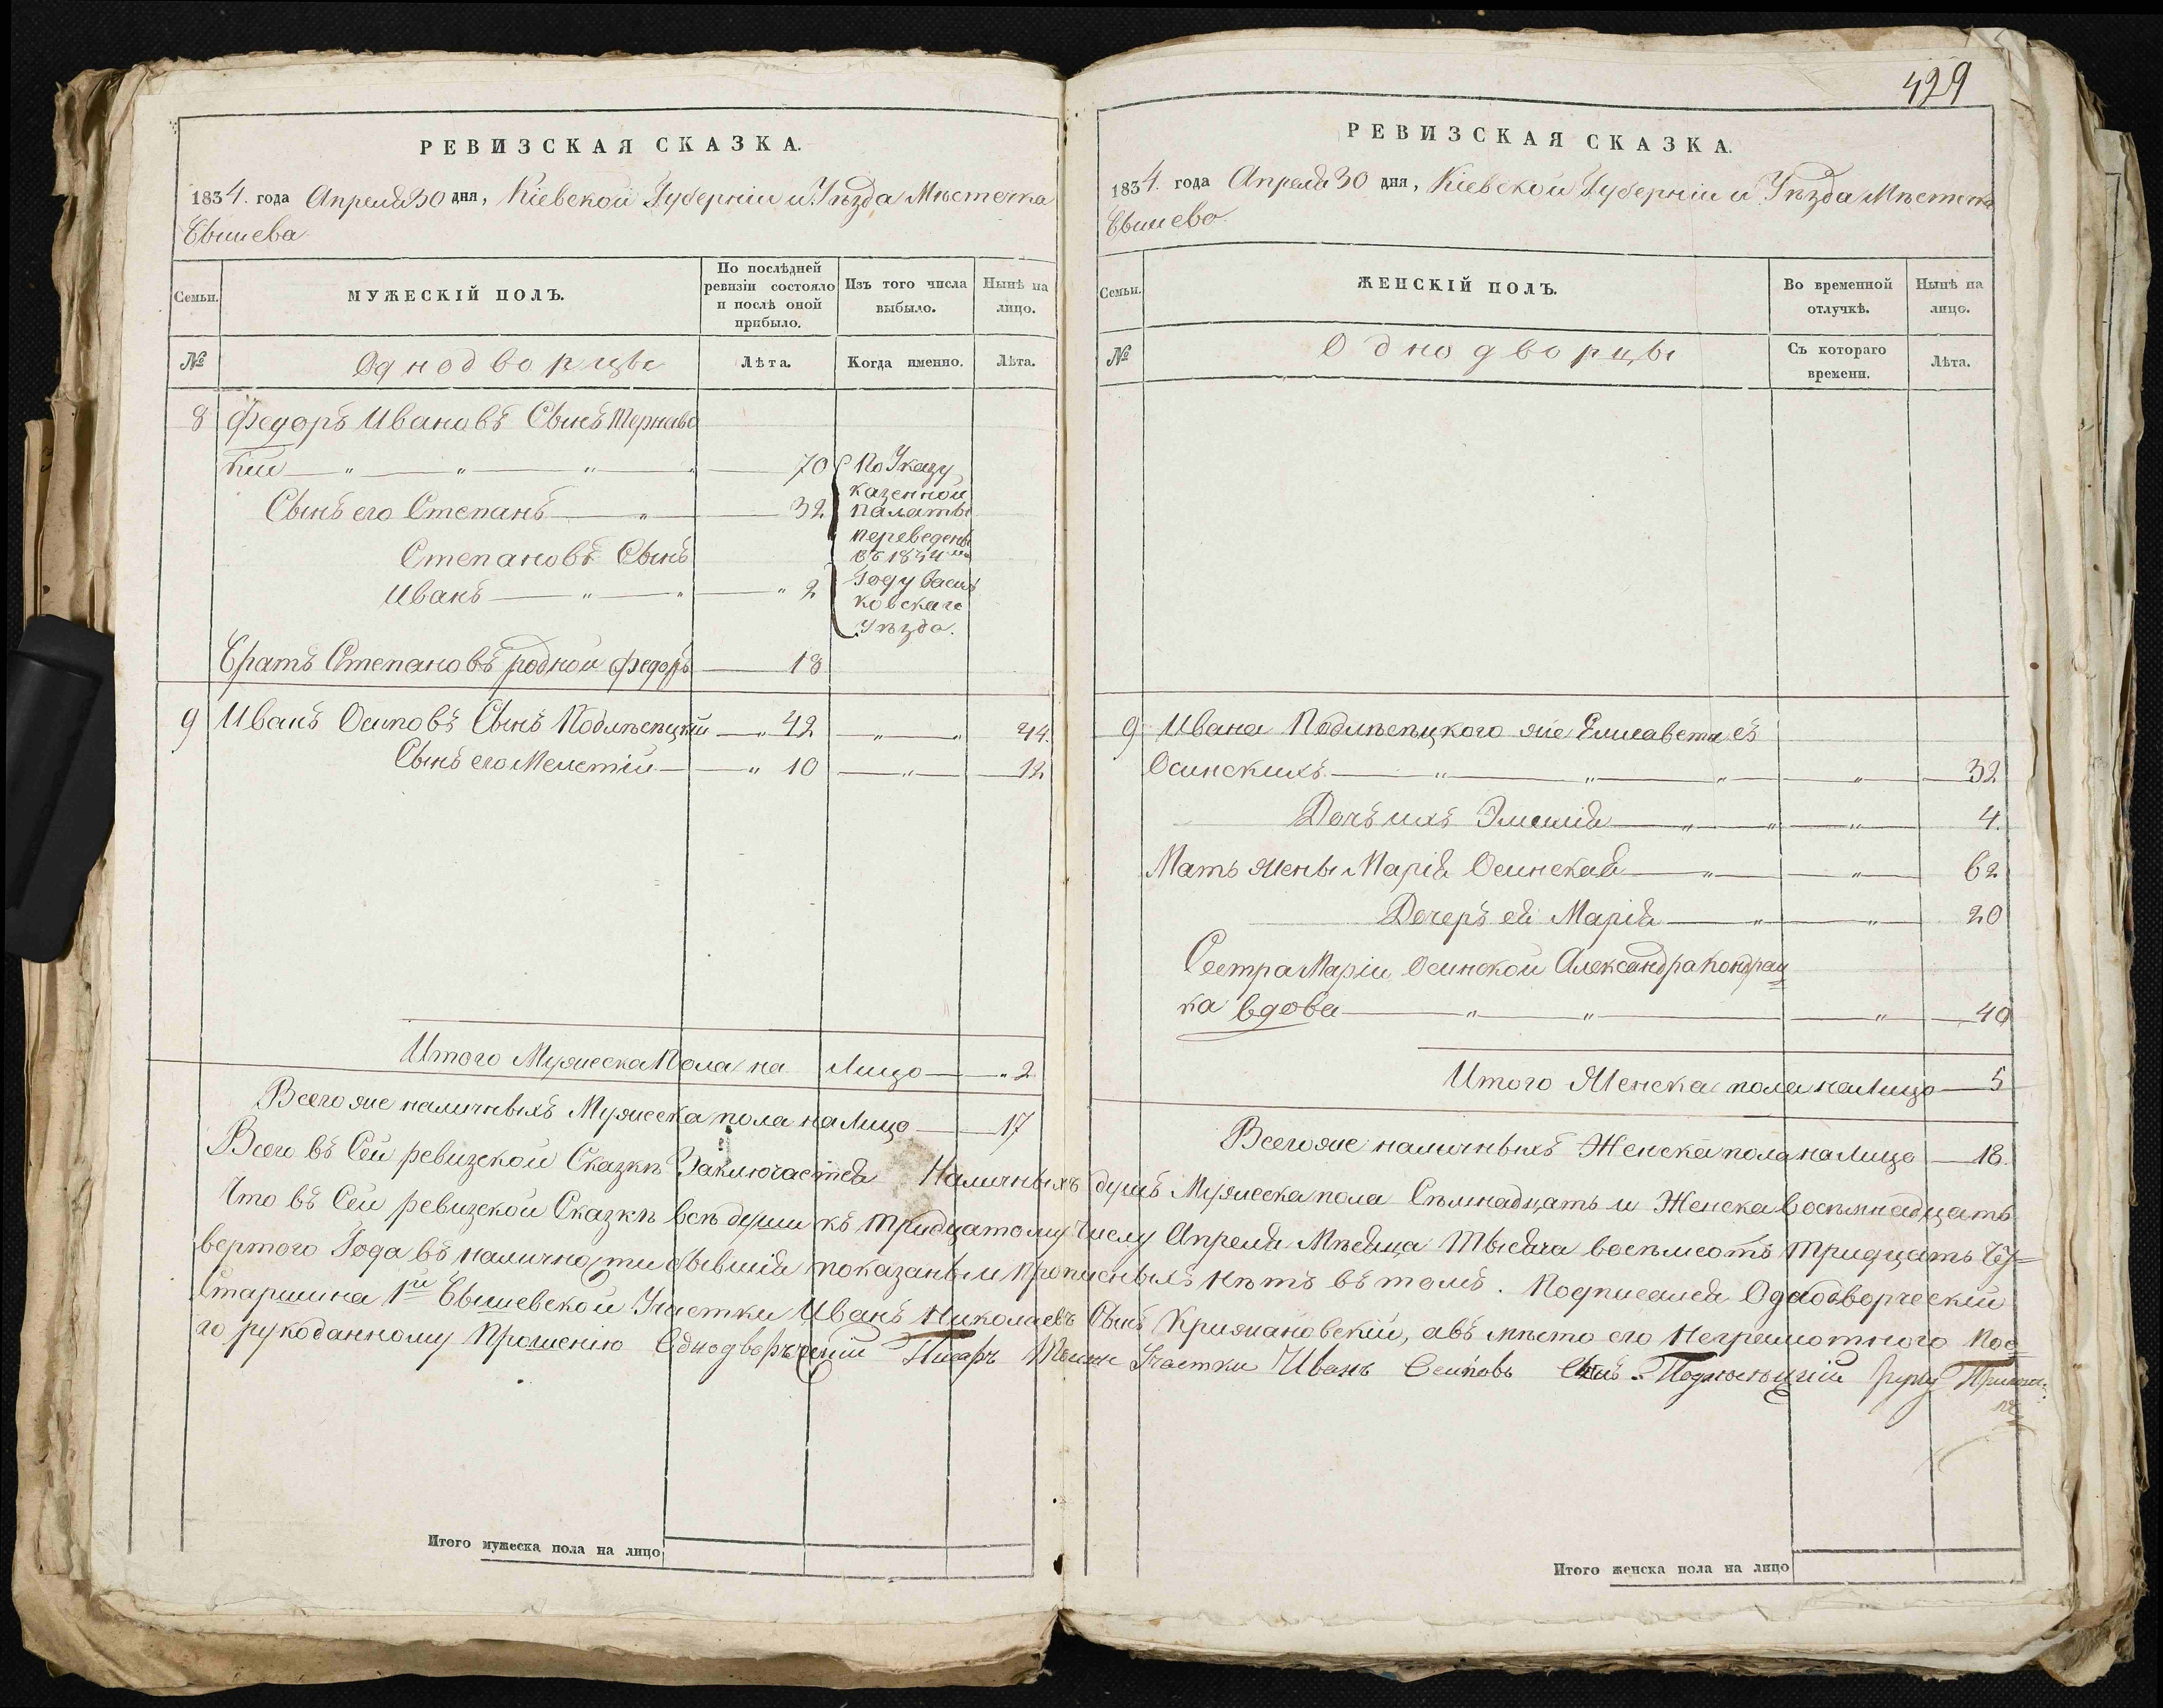 РЕВИЗСКАЯ СКАЗКА.
1834. года Апреля 30 дня, Кіевской Губерніи и Уѣзда Мѣстечка
Бышева
Семьи.
МУЖЕСКІЙ ПОЛЪ.
По послѣдней
ревизіи состояло
и послѣ оной
прибыло.
Изъ того числа
выбыло.
Нынѣ на
лицо.
№
Однодворцы
Лѣта.
Когда именно.
Лѣта.
8 Федоръ Ивановъ Сынъ Тернавс
кій — " — " — " — " — 70
Сынъ его Степанъ — " — 32
Степановъ Сынъ
Иванъ — " — " — " 2
По Указу
казенной
палаты
переведены
въ
Году Василь
ковскаго
Уѣзда.
Братъ Степановъ родной Федоръ — 18
9 Иванъ Осиповъ Сынъ Подлѣсецкій — " 42 — " — " 44.
Сынъ его Мелетій — " 10 — " — 12
Итого Мужеска Пола на Лицо — " 2
Всего же наличныхъ Мужеска пола на Лицо — 17
РЕВИЗСКАЯ СКАЗКА.
429
1834. года Апреля 30 дня, Кіевской Губерніи и Уѣзда Мѣстечка
Бышево
Семьи.
ЖЕНСКІЙ ПОЛЪ.
Во временной
отлучкѣ.
Нынѣ на
лицо.
№
Однодворцы
Съ котораго
времени.
Лѣта.
9 Ивана Подлѣсецкого же Елисавета съ
Осинскихъ — " — " — " — " — 32
Дочь ихъ — " — " — " — 4.
Мать жены Марія Осинская — " — " — 62
Дочеръ ея Марія — " — " — 20
Сестра Маріи Осинской Александра Кондрац
ка вдова — " — " — " — 40
Итого Женска пола на Лицо — 5
Всего же наличныхъ Женска пола на Лицо — 18.
Всего въ Сей ревизской Сказкѣ Заключается Наличныхъ душъ Мужеска пола Сѣмнадцать и Женска Восѣмнадцать
Что въ Сей ревизской Сказкѣ всѣ души къ тридцатому Числу Апреля Мѣсяца Тысяча восемсотъ тридцать Че=
вертого Года въ наличности бывшія показаны и прописныхъ нѣтъ въ томъ. Подписался Однодворческій
Старшина 1й Бышевской Участки Иванъ Николаевъ Сынъ Крижановскій, а въ мѣсто его Неграмотного по
го рукоданному Прошению Однодворческій Писарь Участки Иванъ Осиповъ Сынъ Подлѣсецкій руку
Итого мужеска пола на лицо
Итого женска пола на лицо